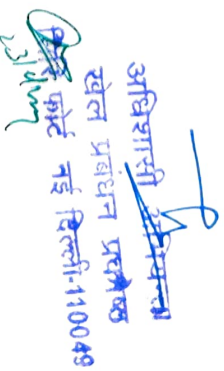 अधिशासी अभियन्ता
खेल प्रबंधन प्रकोष्ठ
फोर्ट नई दिल्ली-110049